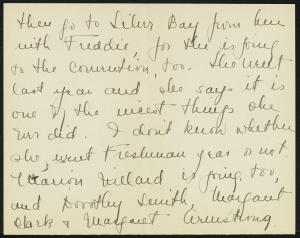 then go to Silver Bay from here
with Freddie, for she is going
to the convention, too. She went
last year and she says it is
one of the nicest things she
ever did. I don't know whether
she went Freshman year or not.
Marion Willard is going, too,
and Dorothy Smith, Margaret
Clark & Margaret Armstrong.